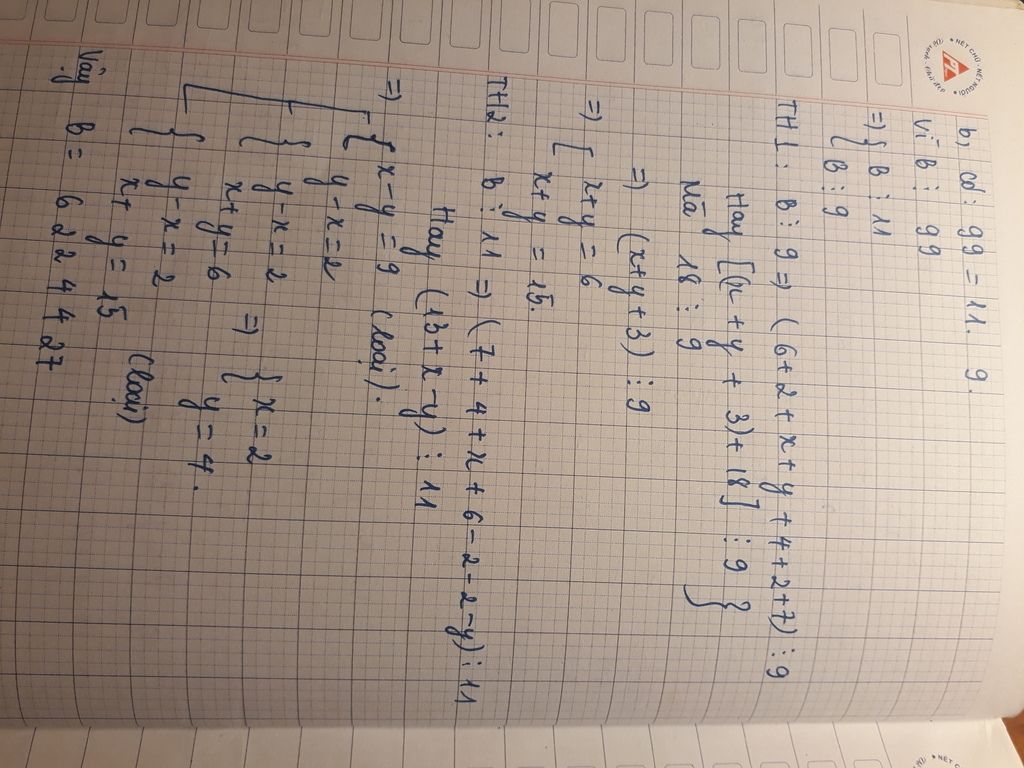 b) có: 99 = 11. 9.
Vì B ⋮ 99
=> { B ⋮ 11
{ B ⋮ 9
TH1: B ⋮ 9 => (6+2+x+y+4+2+7) ⋮ 9
Hay [(x+y+3)+18] ⋮ 9 }
Mà 18 ⋮ 9
=> (x+y+3) ⋮ 9
=> [ x+y = 6
x+y = 15.
TH2: B ⋮ 11 => (7+4+x+6-2-2-y) ⋮ 11
Hay (13+x-y) ⋮ 11
=> [ { x-y = 9 (loại).
y-x = 2
{ y-x = 2
x+y = 6 => { x = 2
y = 4.
{ y-x = 2
x+y = 15 (loại)
Vậy B = 6224427
NÉT CHỮ NẾT NGƯỜI